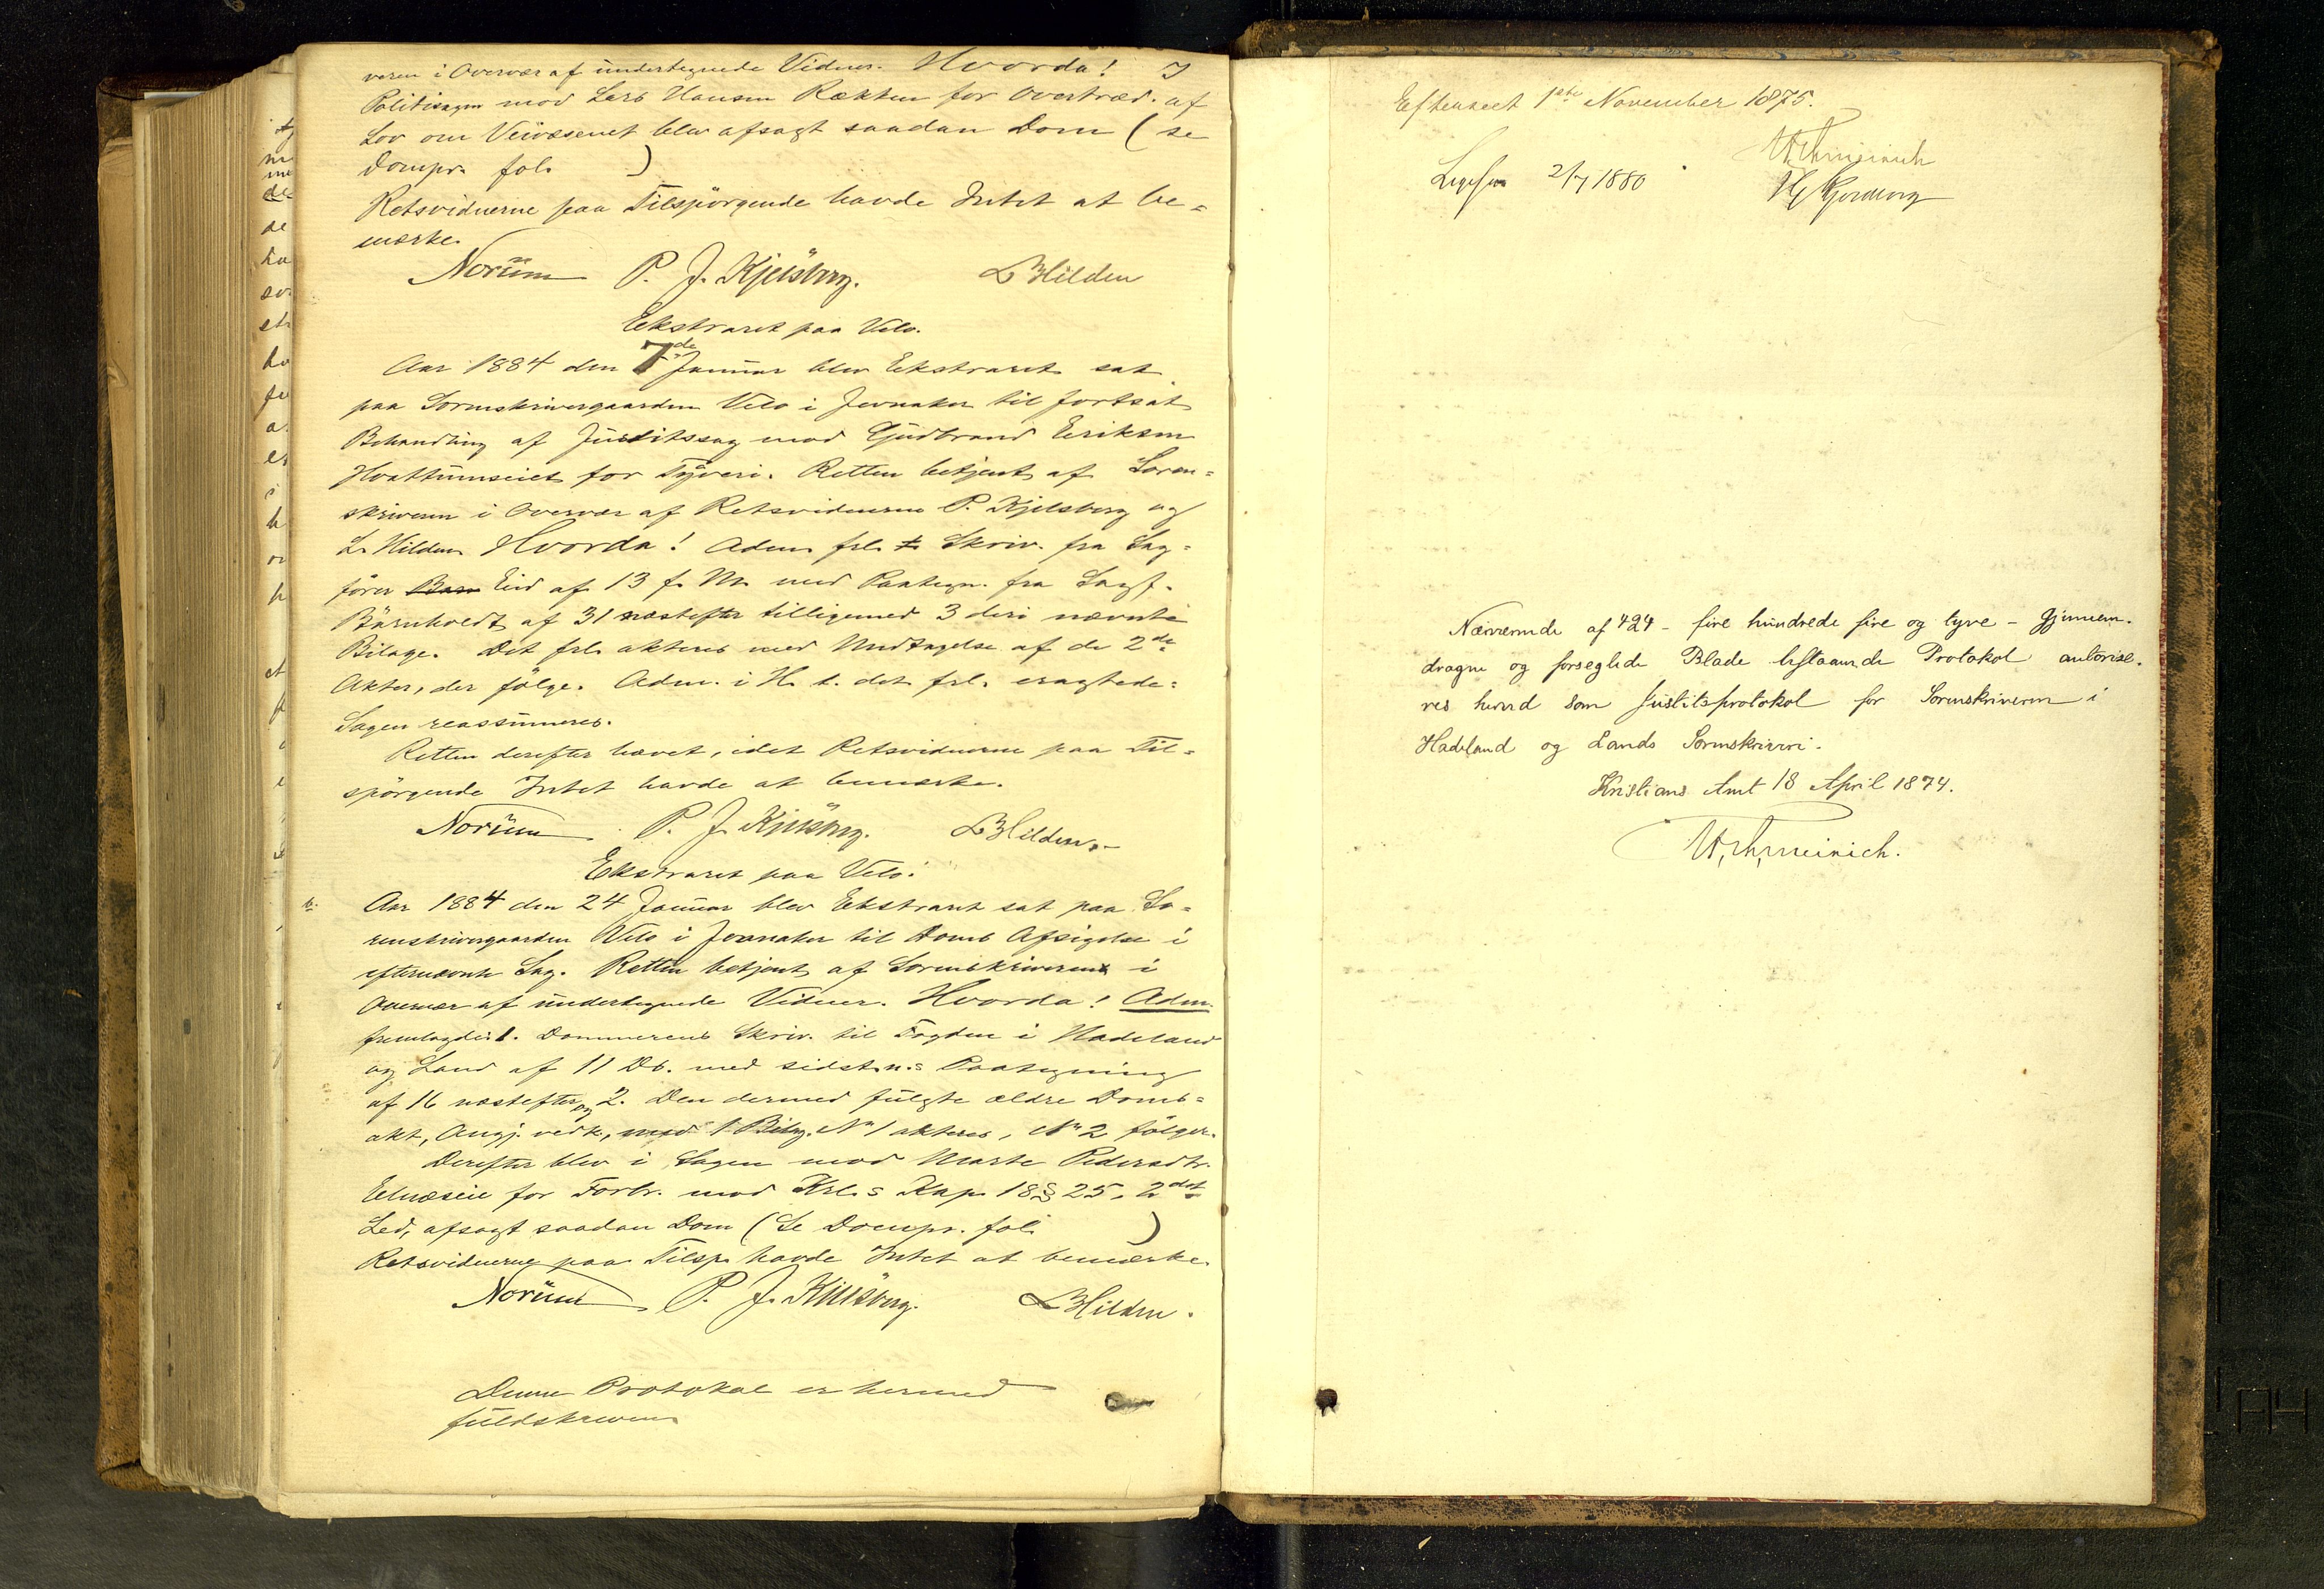 veren i Overvær af undertegnede Vidner. Hvorda! I
Politisagen mod Lars Hansen Rækken for Overtræd. af
Lov om Veivæsenet blev afsagt saadan Dom (se
Dompr. fol. )
Retsvidnerne paa Tilspørgende havde Intet at be=
mærke.
Norum P. J. Kjelsberg. L Hilden
Ekstraret paa Velo.
Aar 1884 den 7de Januar blev Ekstraret sat
paa Sorenskrivergaarden Velo i Jevnaker til fortsat
Behandling af Justitssag mod Gudbrand Eriksen
Hvattumseiet for Tyveri. Retten betjent af Soren=
skriveren i Overvær af Retsvidnerne P. Kjelsberg og
L. Hilden Hvorda! Adm. frl. Skriv. fra Sag=
fører Eid af 13 f. M. med Paategn. fra Sagf.
Bärnholdt af 31 næstefter tilligemed 3 deri nævnte
Bilage. Det frl. akteres med Undtagelse af de 2de
Akter, der følge. Adm. i H. t. det frl. eragtede:
Sagen reassumeres.
Retten derefter hævet, idet Retsvidnerne paa Til=
spørgende Intet havde at bemærke.
Norum P. J. Kjelsberg. L Hilden.
Ekstraret paa Velo.
Aar 1884 den 24 Januar blev Ekstraret sat paa So=
renskrivergaarden Velo i Jevnaker til Doms Afsigelse i
efternævnte Sag. Retten betjent af Sorenskriveren i
Overvær af undertegnede Vidner. Hvorda! Adm.
fremlagde: 1. Dommerens Skriv. til Fogden i Hadeland
og Land af 11 Db. med sidstn.s Paategning
af 16 næstefter og 2. Den dermed fulgte ældre Doms=
akt, Angj. vedk., med 1 Bilag. No 1 akteres, No 2 følger.
Derefter blev i Sagen mod Marte Pedersdtr.
for Forbr. mod Krl.s Kap. 18 § 25, 2det
Led, afsagt saadan Dom (Se Dompr. fol. )
Retsvidnerne paa Tilsp. havde Intet at bemærke.
Norum P. J. Kjelsberg. L Hilden.
Denne Protokol er hermed
fuldskreven
Efterseet 1ste November 1875.
Ligesaa 2/7 1880
Nærværende af 424 - fire hundrede fire og tyve - gjennem-
dragne og forseglede Blade bestaaende Protokol autorise-
res herved som Justitsprotokol for Sorenskriveren i
Hadeland og Lands Sorenskriveri.
Kristians Amt 18 April 1874.